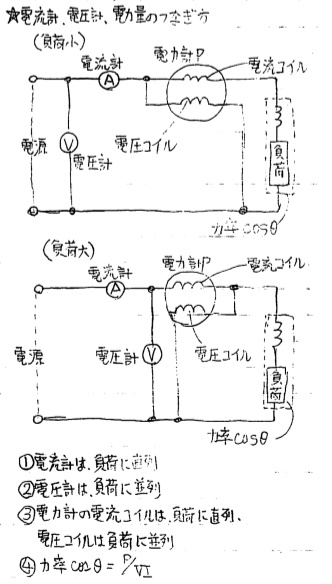 ☆電流計、電圧計、電力量のつなぎ方
(負荷小)
電力計P
電流計
電流コイル
A
V
電源
電圧計
電圧コイル
負荷
力率cosθ
(負荷大)
電流計
電力計P
電流コイル
A
電源
電圧計
V
電圧コイル
負荷
力率cosθ
①電流計は、負荷に直列
②電圧計は、負荷に並列
③電力計の電流コイルは、負荷に直列、
電圧コイルは負荷に並列
④力率cosθ=P/VI